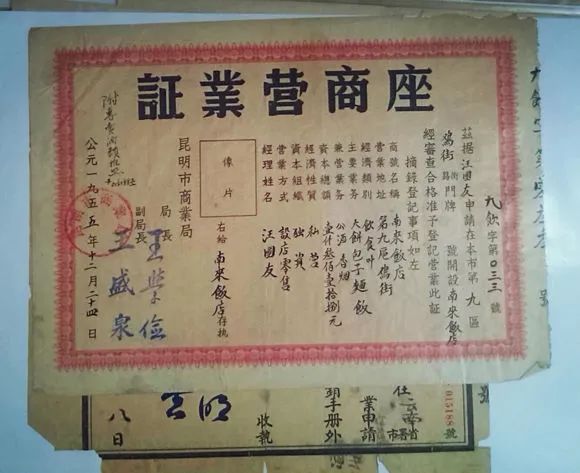 座商营業証
九飲字第0三三號
茲据汪國友申請在本市第九區
鴉街街路門牌 號開設南來飯店
經審查合格准予登記營業此証
摘錄登記事項如左
商號名稱 南來飯店
營業地址 第九區鴉街
經濟類別 飲食叶
主要業務 大餅包子麵飯
兼營業務 香烟
資本總額 壹仟叁佰壹拾捌元
經濟性質 私营
資本組織 独資
營業方式 設店零售
經理姓名 汪國友
像片
右給 南來飯店存执
昆明市商業局
局長
副局長 王盛泉
公元一九五五年十二月二十四日
015188號
云南省
業申請
手册外
收執
八日